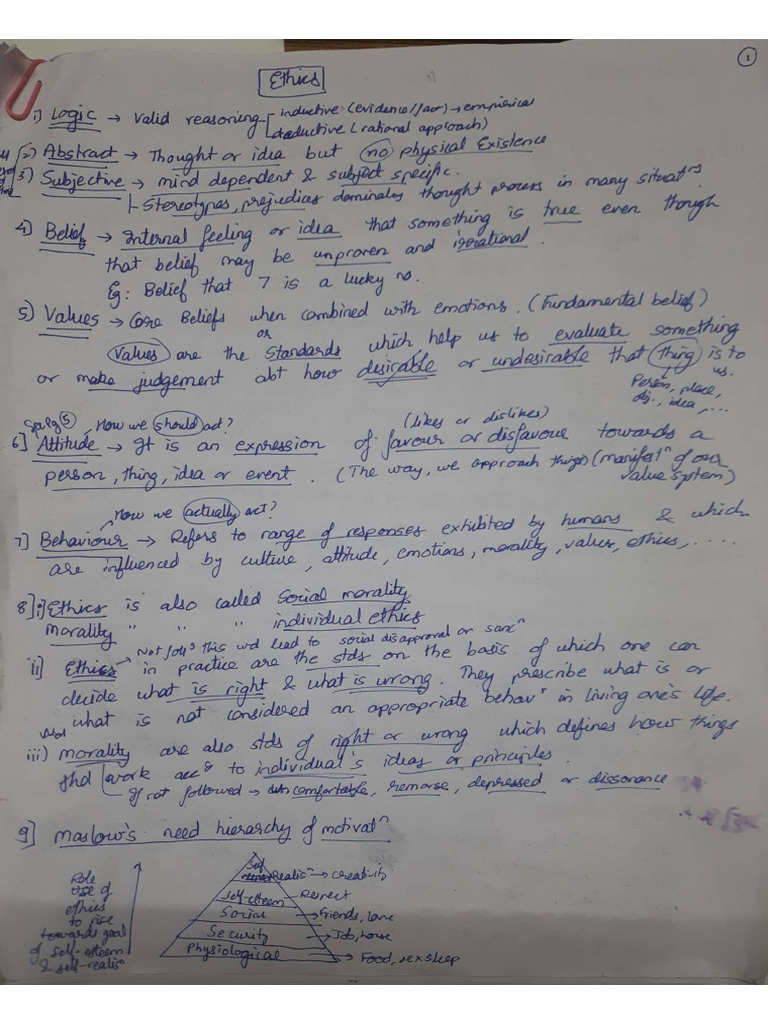 1
Ethics
1) Logic → Valid reasoning inductive (evidence/fact) → empirical
deductive (rational approach)
2) Abstract → Thought or idea but no physical Existence
3) Subjective → mind dependent & subject specific.
Stereotypes, prejudices dominates thought process in many situatns
4] Belief → Internal feeling or idea that something is true even though
that belief may be unproven and irrational.
Eg: Belief that 7 is a lucky no.
5) Values → Core Beliefs when combined with emotions. (Fundamental belief)
or
Values are the standards which help us to evaluate something
or make judgement abt how desirable or undesirable that thing is to
us.
Person, place,
obj., idea, ...
5 How we should act? (likes or dislikes)
6] Attitude → It is an expression of favour or disfavour towards a
person, thing, idea or event. (The way, we approach things) (manifestn of our
value system)
How we actually act?
7] Behaviour → Refers to range of responses exhibited by humans & which
are influenced by culture, attitude, emotions, morality, values, ethics, .....
8] i] Ethics is also called Social morality
Morality " " " individual ethics
Not follg this wd lead to social disapproval or sanxn
ii] Ethics in practice are the stds on the basis of which one can
decide what is right & what is wrong. They prescribe what is or
what is not considered an appropriate behavr in living one's life.
iii) Morality are also stds of right or wrong which defines how things
shd work accg to individual's ideas or principles.
If not followed → uncomfortable, remorse, depressed or dissonance
9] Maslow's need hierarchy of motivatn
Self
realisn → creativity
Self-esteem - Respect
Social → Friends, love
Security → Job, house
Physiological → Food, sex sleep
Role
Use of
ethics
to rise
towards goal
of self-esteem
& self-realisn